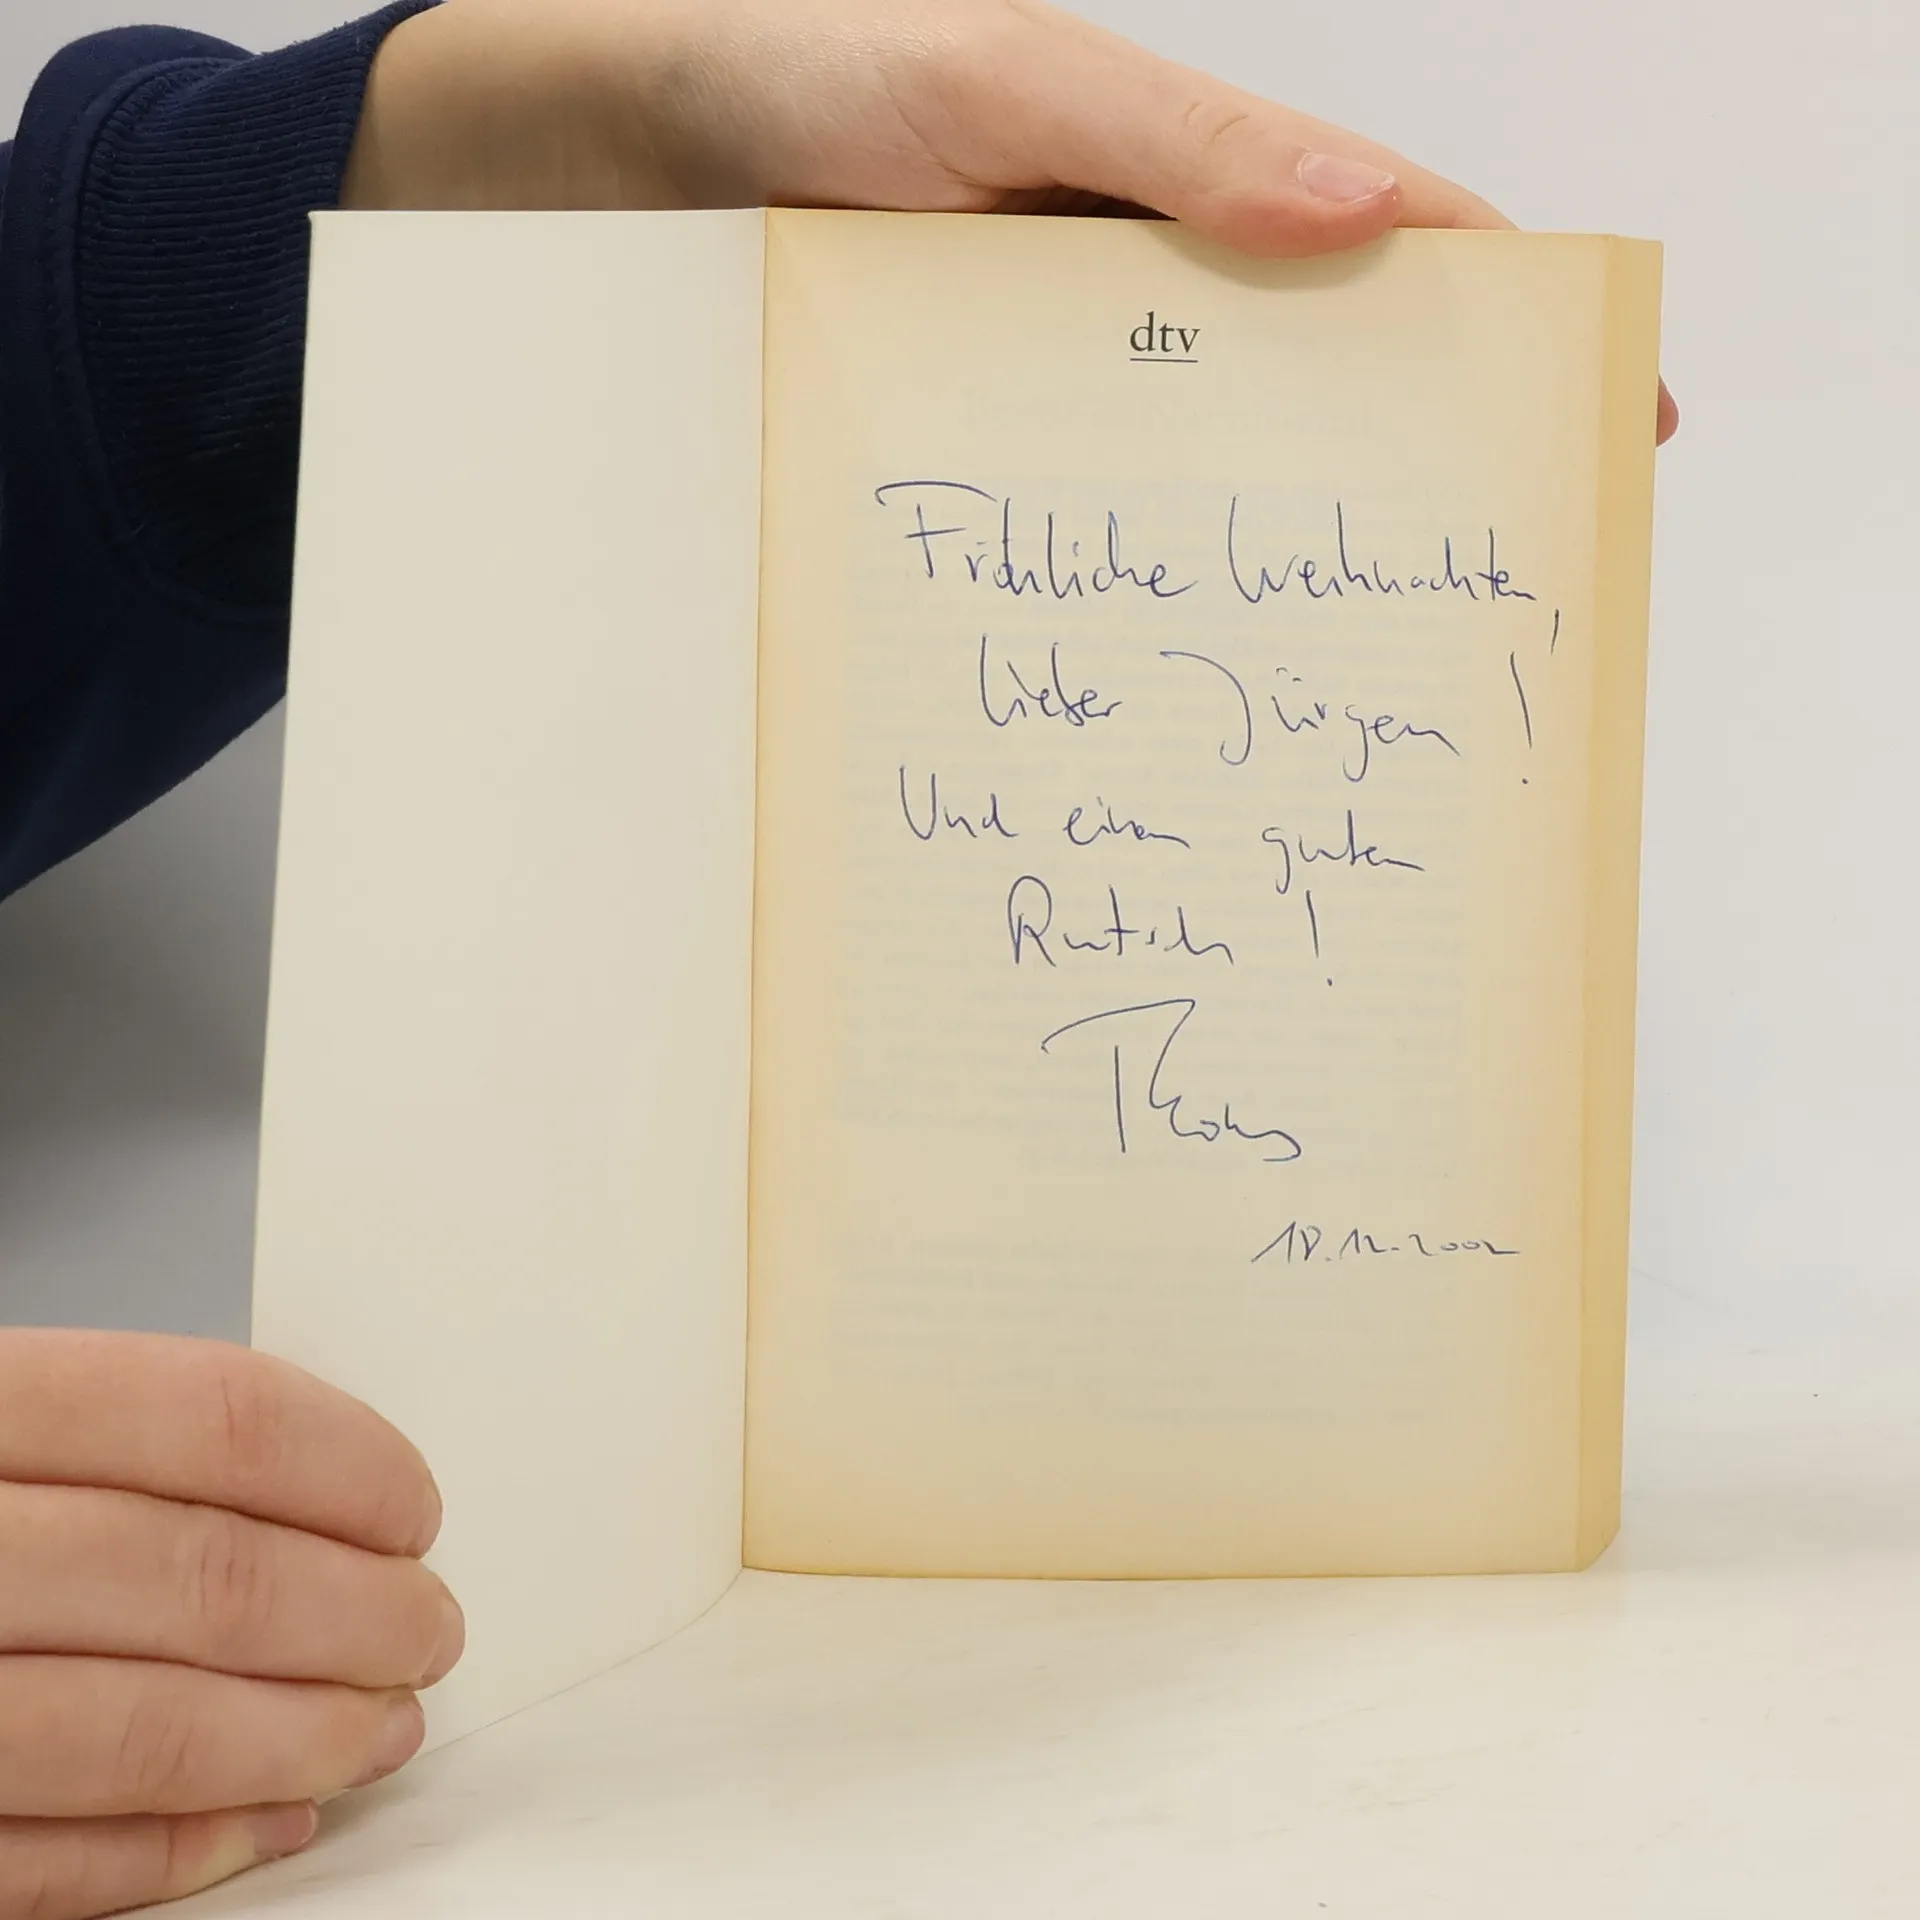 dtv
Fröhliche Weihnachten,
lieber Jürgen!
Und einen guten
Rutsch!
Thomas
18.12.2002